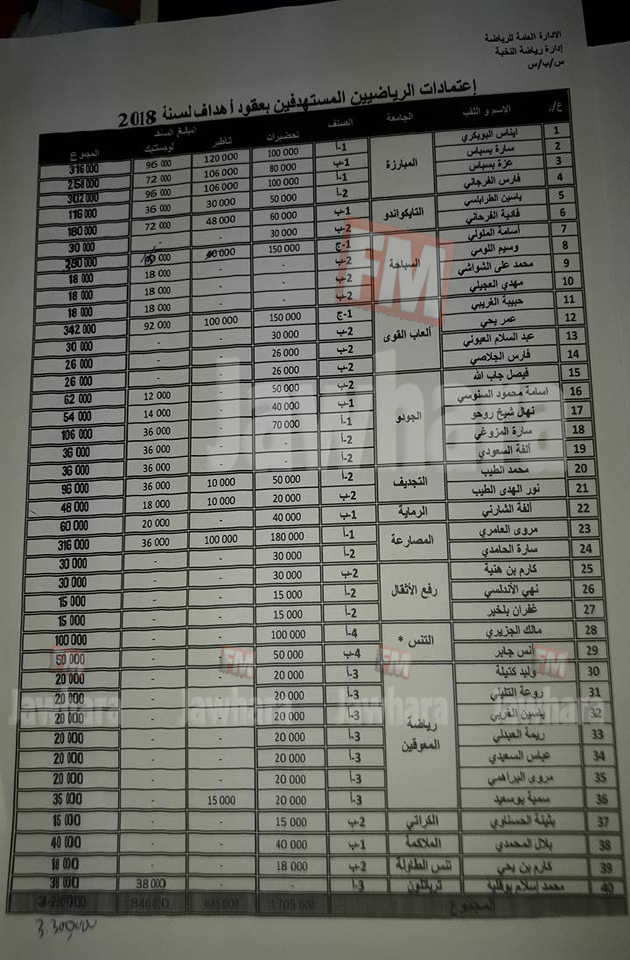 الادارة العامة للرياضة
إدارة رياضة النخبة
س/ب/س
إعتمادات الرياضيين المستهدفين بعقود أهداف لسنة 2018
ع/د الاسم و اللقب الجامعة الصنف تحضيرات تأطير المبلغ المسند لوجستيك المجموع
1 ايناس البوبكري المبارزة 1-أ 100 000 120 000 96 000 316 000
2 سارة بسباس 1-ب 80 000 106 000 72 000 258 000
3 عزة بسباس 1-أ 100 000 106 000 96 000 302 000
4 فارس الفرجاني 2-أ 50 000 30 000 36 000 116 000
5 ياسين الطرابلسي التايكواندو 1-ب 60 000 48 000 72 000 180 000
6 فادية الفرحاني 2-ب 30 000 - - 30 000
7 أسامة الملولي السباحة 1-ج 150 000
8 وسيم اللومي 2-ب - - 18 000 18 000
9 محمد علي الشواشي 2-ب - - 18 000 18 000
10 مهدي العجيلي 2-ب - - 18 000 18 000
11 حبيبة الغريبي ألعاب القوى 1-ج 150 000 100 000 92 000 342 000
12 عمر يحي 2-ب 30 000 - - 30 000
13 عبد السلام العيوني 2-ب 26 000 - - 26 000
14 فارس الجلاصي 2-ب 26 000 - - 26 000
15 فيصل جاب الله الجودو 2-ب 50 000 - 12 000 62 000
16 اسامة محمود السنوسي 1-ب 40 000 - 14 000 54 000
17 نهال شيخ روحو 1-أ 70 000 - 36 000 106 000
18 سارة المزوغي 2-أ - - 36 000 36 000
19 ألفة السعودي 2-أ - - 36 000 36 000
20 محمد الطيب التجديف 2-أ 50 000 10 000 36 000 96 000
21 نور الهدى الطيب 2-ب 20 000 10 000 18 000 48 000
22 ألفة الشارني الرماية 1-ب 40 000 - 20 000 60 000
23 مروى العامري المصارعة 1-أ 180 000 100 000 36 000 316 000
24 سارة الحامدي 2-أ 30 000 - - 30 000
25 كارم بن هنية رفع الأثقال 2-ب 30 000 - - 30 000
26 نهي الأندلسي 2-أ 15 000 - - 15 000
27 غفران بلخير 2-أ 15 000 - - 15 000
28 مالك الجزيري التنس * 4-أ 100 000 - - 100 000
29 أنس جابر 4-ب 50 000 - - 50 000
30 وليد كتيلة رياضة المعوقين 3-أ 20 000 - - 20 000
31 روعة التليلي 3-أ 20 000 - - 20 000
32 ياسين الغربي 3-أ 20 000 - - 20 000
33 ريمة العبدلي 3-أ 20 000 - - 20 000
34 عباس السعيدي 3-أ 20 000 - - 20 000
35 مروى البراهمي 3-أ 20 000 - - 20 000
36 سمية بوسعيد 3-أ 20 000 15 000 - 35 000
37 بثينة الحسناوي الكراتي 2-ب 15 000 - - 15 000
38 بلال المحمدي الملاكمة 1-ب 40 000 - - 40 000
39 كارم بن يحي تنس الطاولة 2-ب 18 000 - - 18 000
40 محمد إسلام بوقلية ترياتلون 3-أ - - 38 000 38 000
المجموع
FM
Jawhara
FM
Jawhara
FM
Jawhara
FM
Jawhara
FM
Jawhara